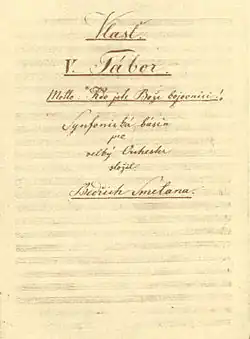 Vlasť.
V. Tábor.
Motto: "Kdo jste Boží bojovníci"!
Synfonická báseň
pro
velký Orchester
složil
Bedřich Smetana.